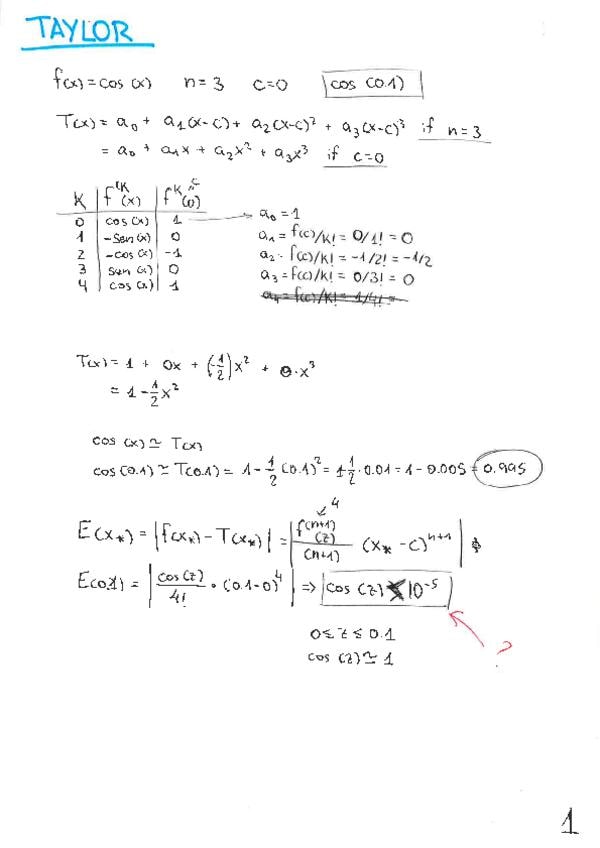 TAYLOR
f(x) = cos(x) n=3 c=0 cos(0.1)
T(x) = a₀ + a₁(x-c) + a₂(x-c)² + a₃(x-c)³ if n=3
= a₀ + a₁x + a₂x² + a₃x³ if c=0
K f^(K (x) f^K (0) c
0 cos(x) 1 → a₀ = 1
1 -sen(x) 0 a₁ = f(c)/K! = 0/1! = 0
2 -cos(x) -1 a₂ = f(c)/K! = -1/2! = -1/2
3 sen(x) 0 a₃ = f(c)/K! = 0/3! = 0
4 cos(x) 1 a₄ = f(c)/K! = 1/4! =
T(x) = 1 + 0x + (-1/2)x² + 0·x³
= 1 - 1/2 x²
cos(x) ≃ T(x)
cos(0.1) ≃ T(0.1) = 1 - 1/2 (0.1)² = 1 1/2 · 0.01 = 1 - 0.005 = 0.995
4
E(x*) = |f(x*) - T(x*)| = |f^(n+1)(z) / (n+1) (x* - c)^(n+1)|
E(0.1) = |cos(z)/4! · (0.1-0)⁴| => cos(z) < 10⁻⁵
0 ≤ z ≤ 0.1 ?
cos(z) ≃ 1
1